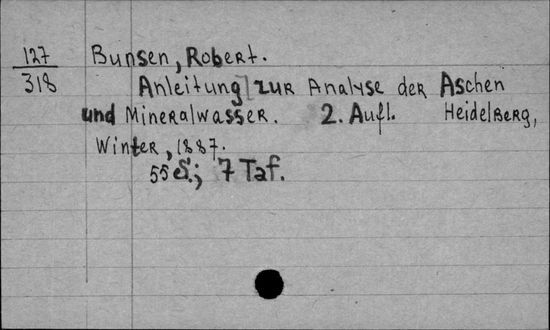 127 Bunsen, Robert.
318 Anleitung zur Analyse der Aschen
und Mineralwasser. 2. Aufl. Heidelberg,
Winter, 1887.
55 S.; 7 Taf.